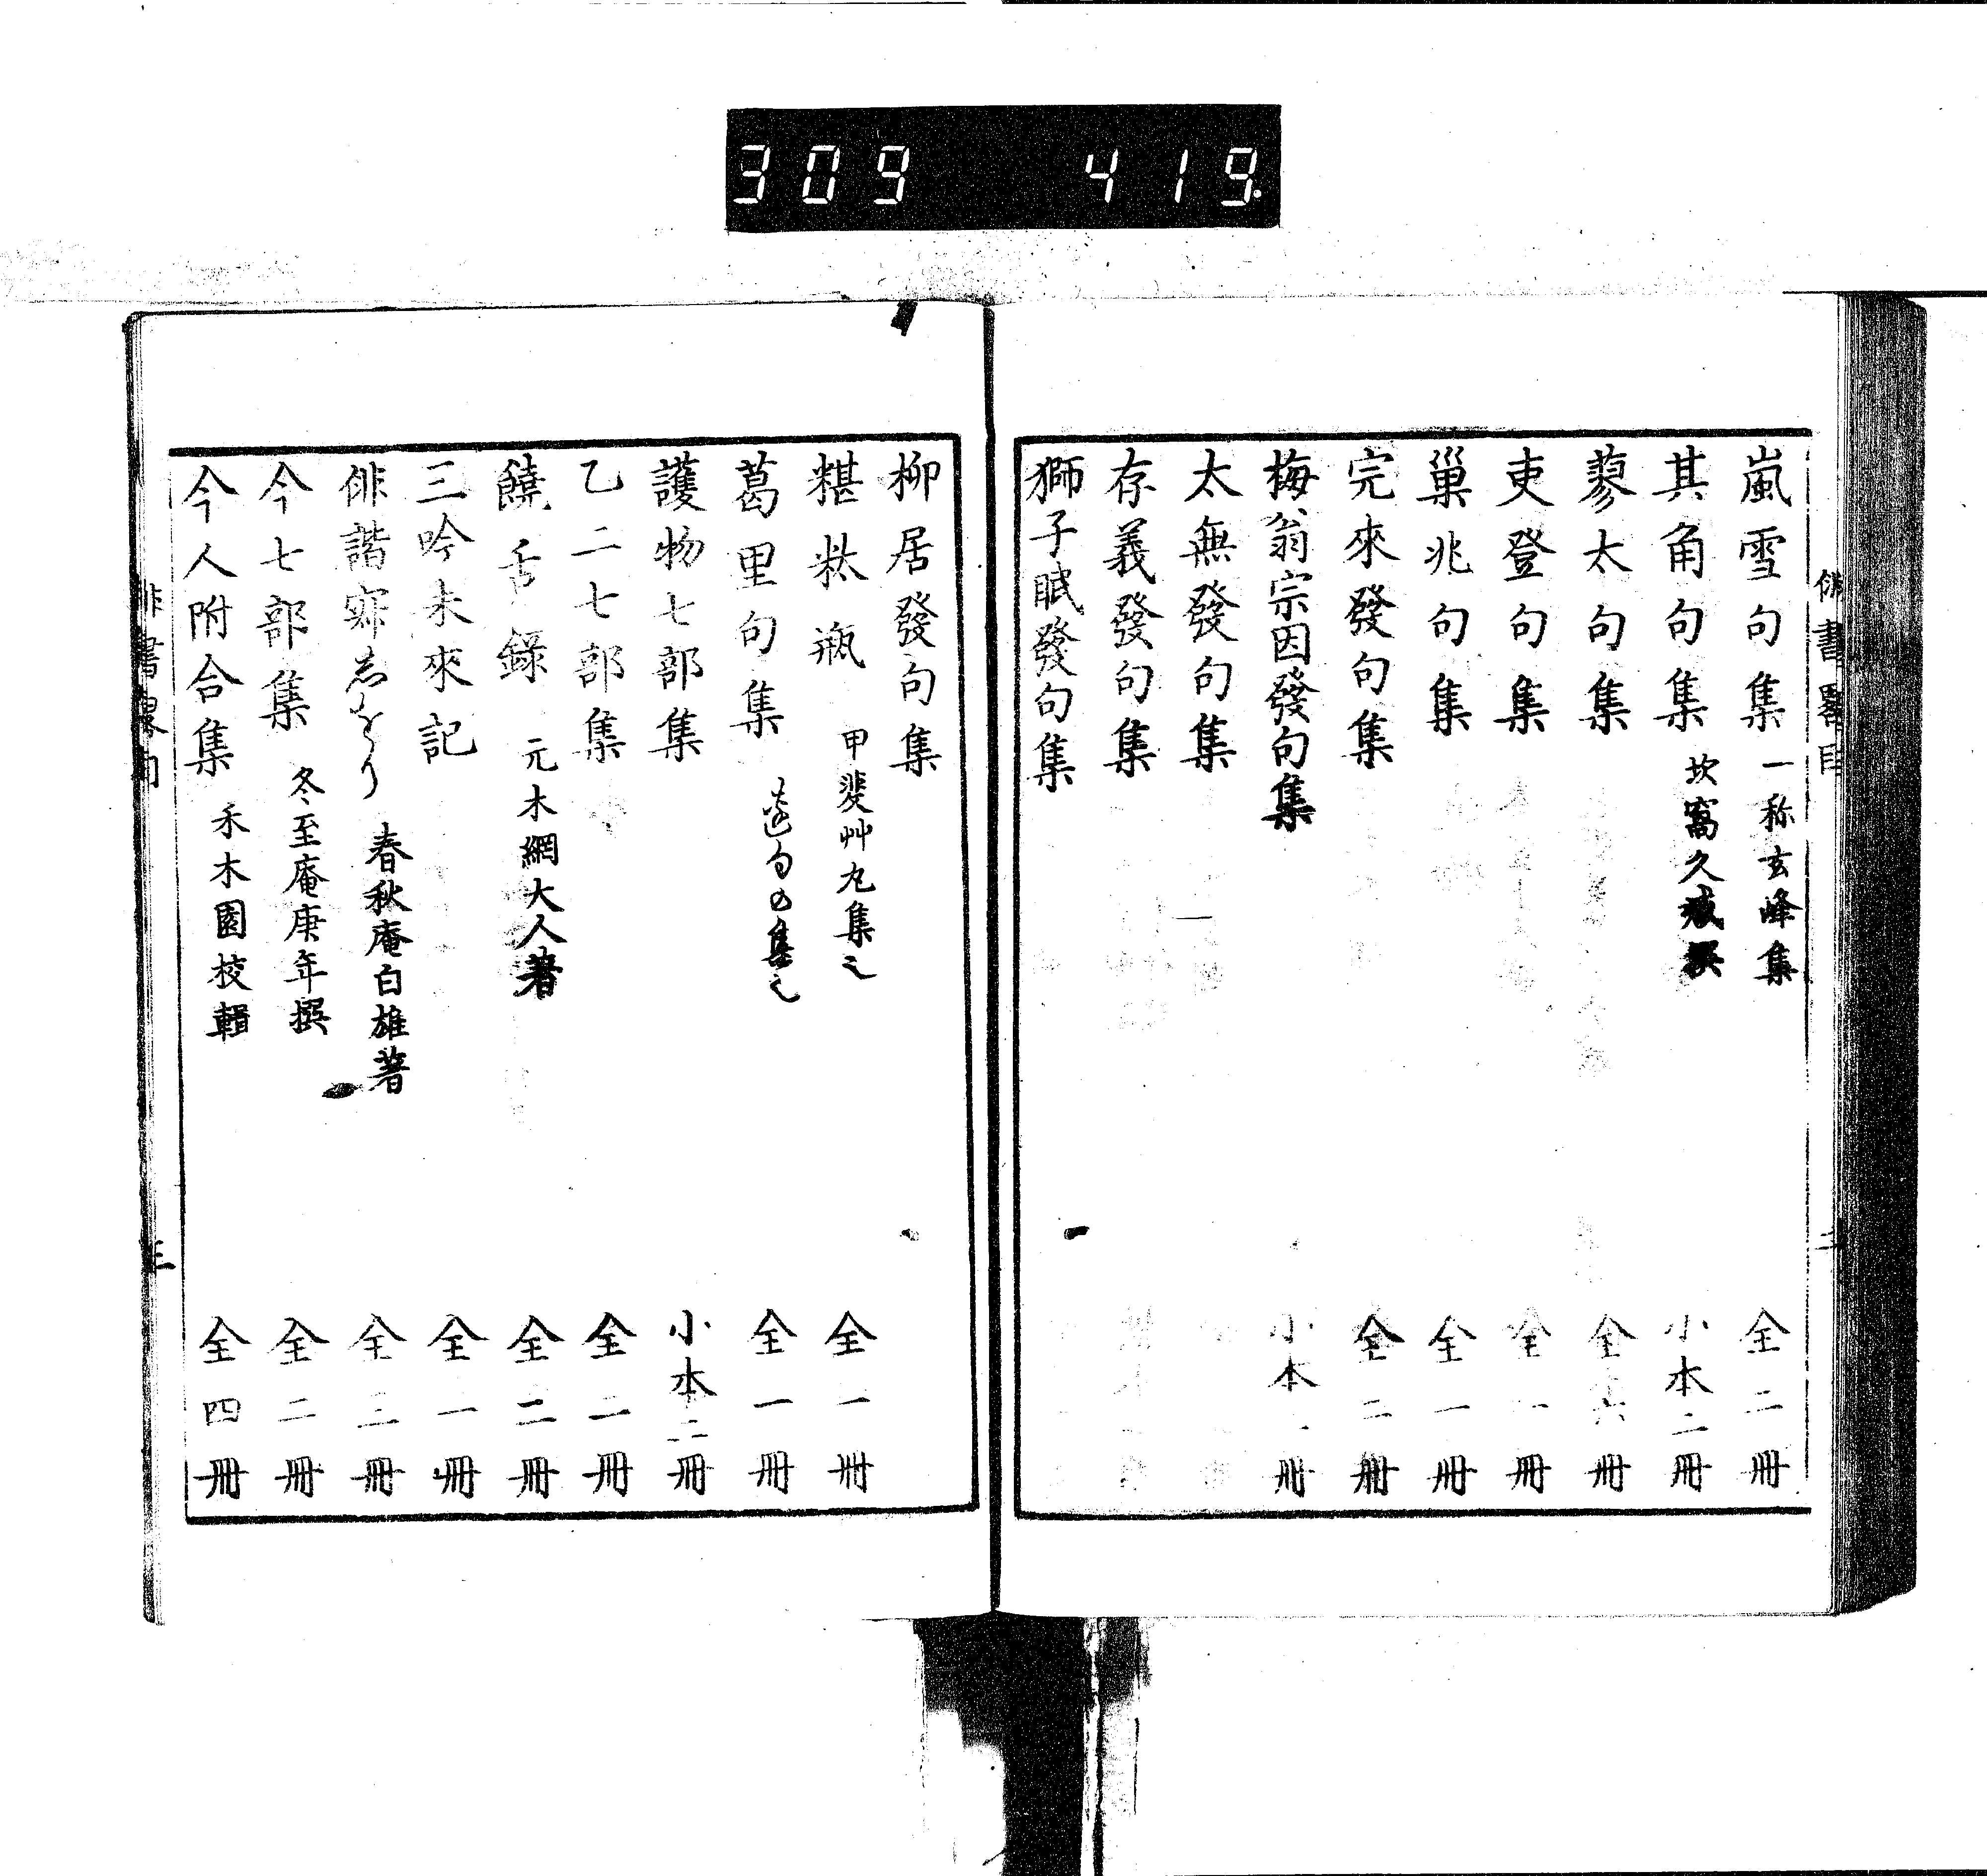 309 419.
俳書畧目
嵐雪句集 一称玄峰集 全二冊
其角句集 坎窩久臧撰 小本二冊
蓼太句集 全六冊
吏登句集 全一冊
巢兆句集 全一冊
完來發句集 全二冊
梅翁宗因發句集 小本一冊
太無發句集
存義發句集
獅子眠發句集
柳居發句集
糂粏瓶 甲斐艸丸集之 全一冊
葛里句集 句の集之 全一冊
護物七部集 小本二冊
乙二七部集 全二冊
饒舌錄 元木網大人著 全二冊
三吟未來記 全一冊
俳諧寂志をり 春秋庵白雄著 全三冊
今七部集 冬至庵庚年撰 全二冊
今人附合集 禾木園校輯 全四冊
三